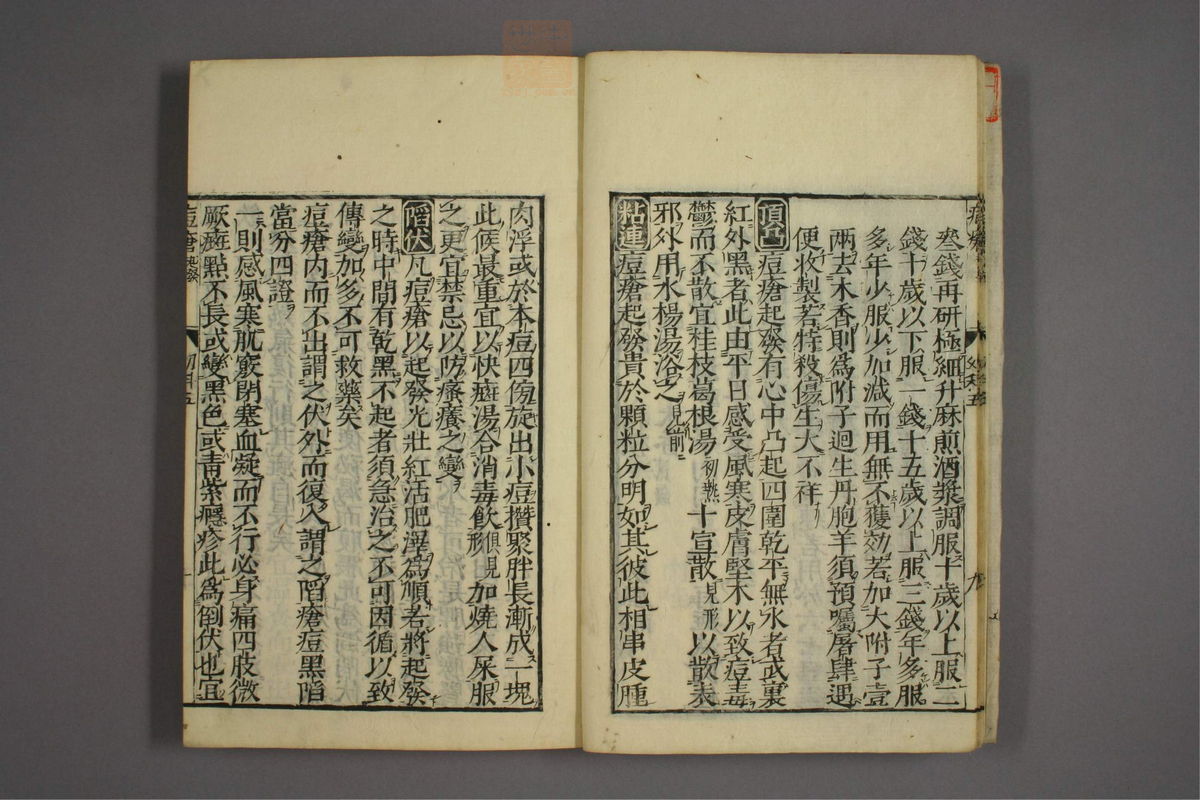 叄錢再研極細升麻煎酒漿調服十歲以上服二
錢十歲以下服一錢十五歲以上服三錢年多服
多年少服少加減而用無不獲効若加大附子壹
兩去木香則爲附子迴生丹胞羊須預囑屠肆遇
便收製若特殺傷生大不祥
頂凸痘瘡起發有心中凸起四圍乾平無水者或裏
紅外黑者此由平日感受風寒皮膚堅木以致痘毒
鬱而不散宜桂枝葛根湯初熱十宣散見形以散表
邪外用水楊湯浴之見前
粘連痘瘡起發貴於顆粒分明如其彼此相串皮腫
肉浮或於本痘四傍旋出小痘攅聚胖長漸成一塊
此候最重宜以快癍湯合消毒飲俱見形加燒人屎服
之更宜禁忌以防瘙癢之變
陷伏凡痘瘡以起發光壯紅活肥澤爲順者將起發
之時中間有乾黑不起者須急治之不可因循以致
傳變加多不可救藥矣
痘瘡內而不出謂之伏外而復入謂之陷瘡痘黑陷
當分四證
一則感風寒肌竅閉塞血凝而不行必身痛四肢微
厥癍點不長或變黑色或靑紫癮疹此爲倒伏也宜
痘瘡